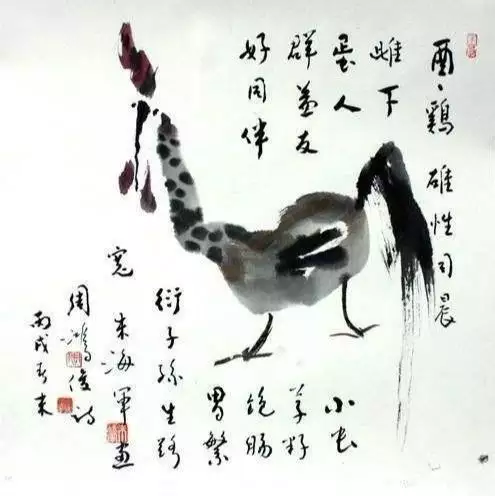 酉、鷄 雄性司晨
雌下
蛋人
群益友
好同伴
小虫
草籽
饱肠
胃繁
衍子孫生路
宽 朱海军画
周鸿俊诗
丙戌春末